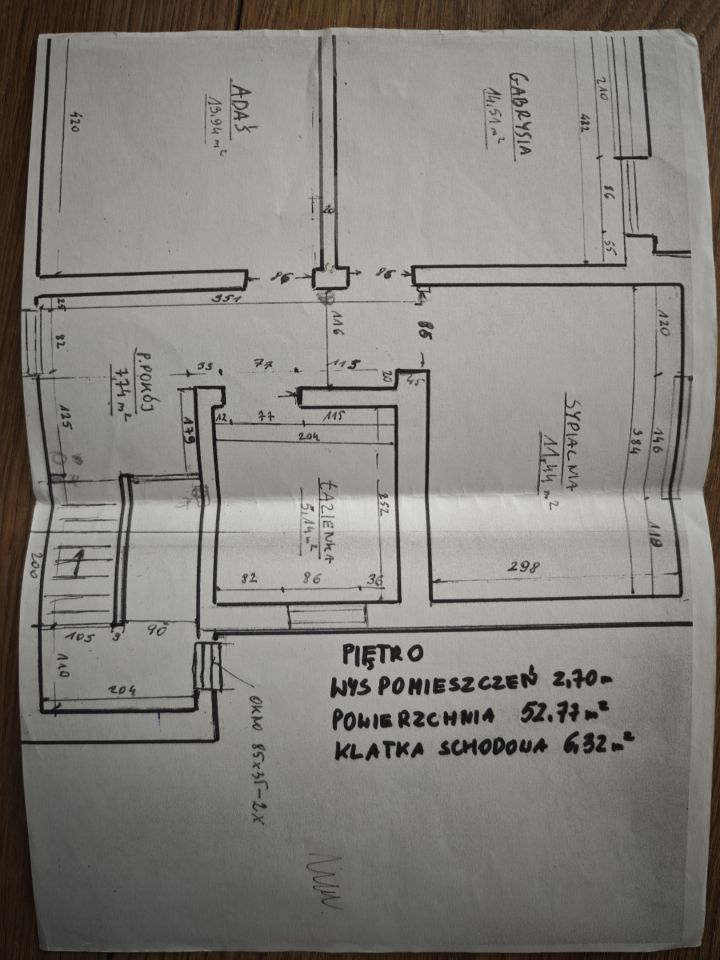 ADAŚ
13.94 m²
420
GABRYSIA
14,51 m²
210
482
86
55
86
86
351
25
82
125
116
86
33
77
115
20
P. POKÓJ
7,74 m²
179
12
77
115
204
ŁAZIENKA
5,14 m²
252
82
86
36
SYPIALNIA
11,44 m²
120
146
384
118
298
200
1
105
9
90
110
204
OKNO 85x35-2x
PIĘTRO
WYS POMIESZCZEŃ 2,70m
POWIERZCHNIA 52.77m²
KLATKA SCHODOWA 6,32 m²